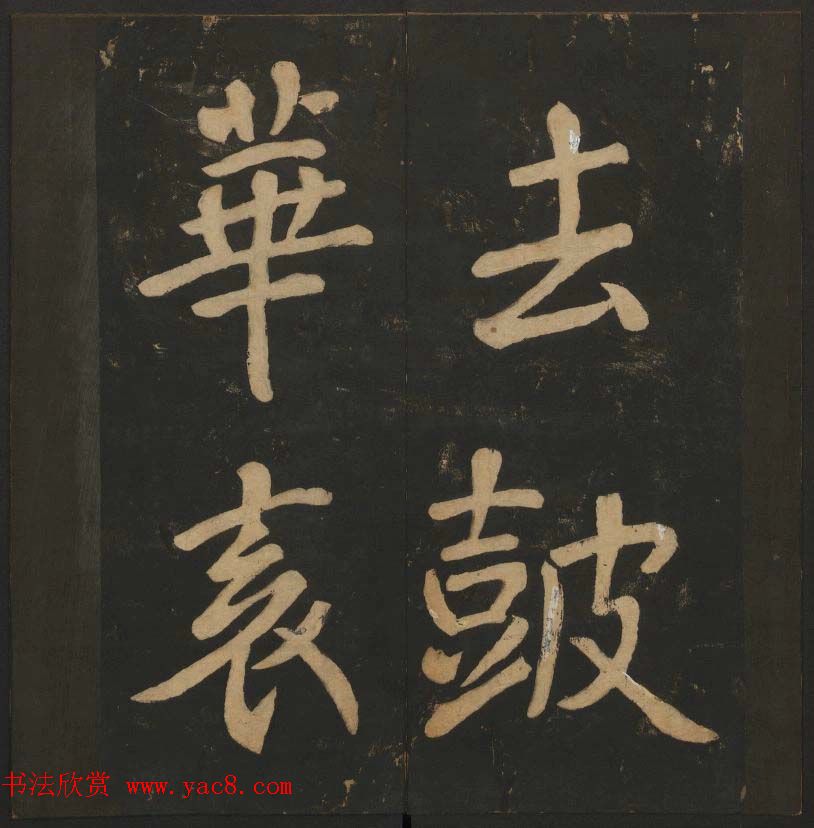 去皷
華
书法欣赏 www.yac8.com